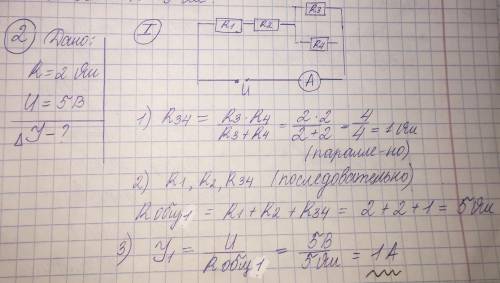 2 Дано: I
R = 2 Ом
U = 5В
ΔУ - ?
R1 R2 R3
R4
U A
1) R34 = R3 · R4 / R3 + R4 = 2 · 2 / 2 + 2 = 4 / 4 = 1 Ом
(паралле-но)
2) R1, R2, R34 (последовательно)
Rобщ1 = R1 + R2 + R34 = 2 + 2 + 1 = 5 Ом
3) У1 = U / Rобщ1 = 5В / 5 Ом = 1А